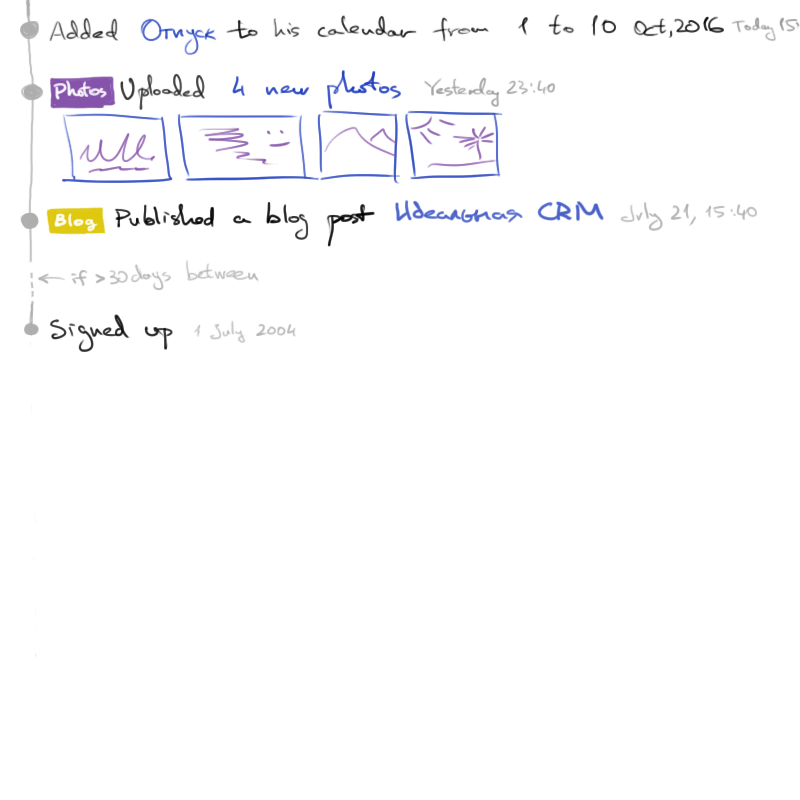 Added Отпуск to his calendar from 1 to 10 Oct, 2016 Today 15:
Photos Uploaded 4 new photos Yesterday 23:40
Blog Published a blog post Идеальная CRM July 21, 15:40
← if > 30 days between
Signed up 1 July 2004